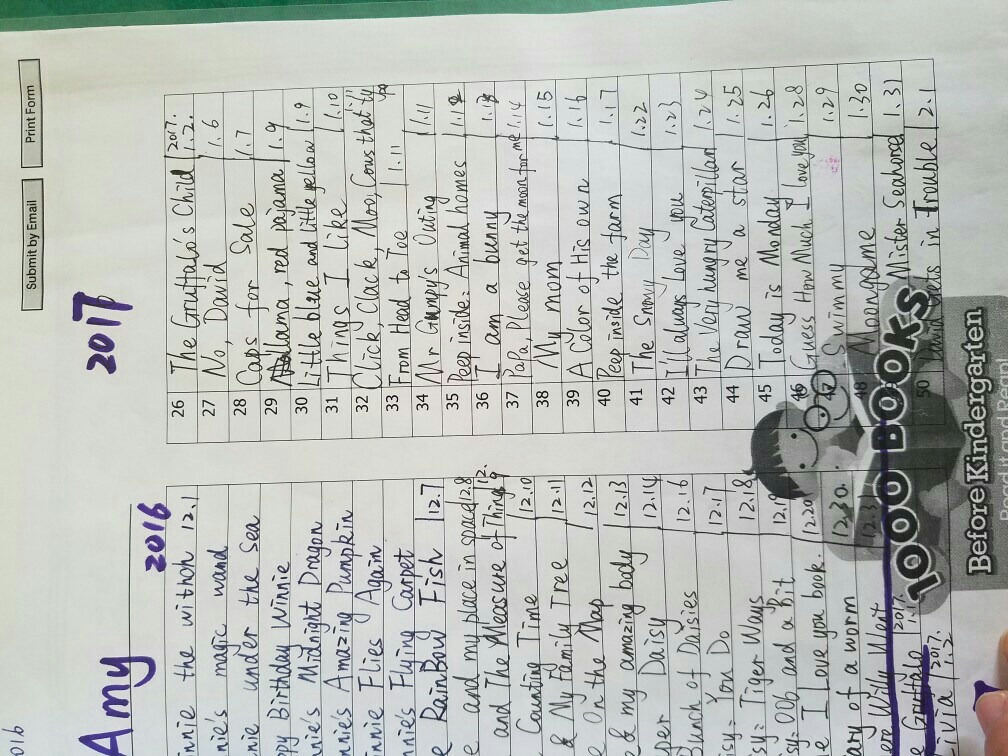 Submit by Email
Print Form
016
Amy
2016
2017
nnie the witch 12.1
nnie's magic wand
nnie under the Sea
ppy Birthday Winnie
nnie's Midnight Dragon
nnie's Amazing Pumpkin
nnie Flies Again
nnie's Flying Carpet
e RainBow Fish 12.7
e and my place in space 12.8
e and The Measure of Things 12.9
Counting Time 12.10
e & My Family Tree 12.11
On the Map 12.12
e & my amazing body 12.13
sper Daisy 12.14
Bunch of Daisies 12.16
isy: You Do 12.17
sy: Tiger Ways 12.18
y: 006 and a Bit 12.19
e I Love you book. 12.20
ary of a worm 12.30.
Wily Went 12.31
Gruffalo 2017.
ivia 2017. 1.2
26 The Gruffalo's Child 2017. 1.2.
27 No, David 1.6
28 Caps for Sale 1.7
29 llama, red pajama 1.9
30 Little blue and little yellow 1.9
31 Things I like 1.10
32 Click, Clack, Moo, Cows that type 1.11
33 From Head to Toe 1.11
34 Mr Gumpy's Outing 1.11
35 Peep inside: Animal homes
36 I am a bunny
37 Papa, Please get the moon for me 1.14
38 My mom 1.15
39 A Color of His own 1.16
40 Peep inside the farm 1.17
41 The Snowy Day 1.22
42 I'll always Love you 1.23
43 The Very hungry Caterpillar 1.24
44 Draw me a star 1.25
45 Today is Monday 1.26
46 Guess How Much I love you 1.28
47 Swimmy 1.29
48 Moongame 1.30
Mister Seahorse 1.31
50 David Gets in Trouble 2.1
1000 BOOKS
Before Kindergarten